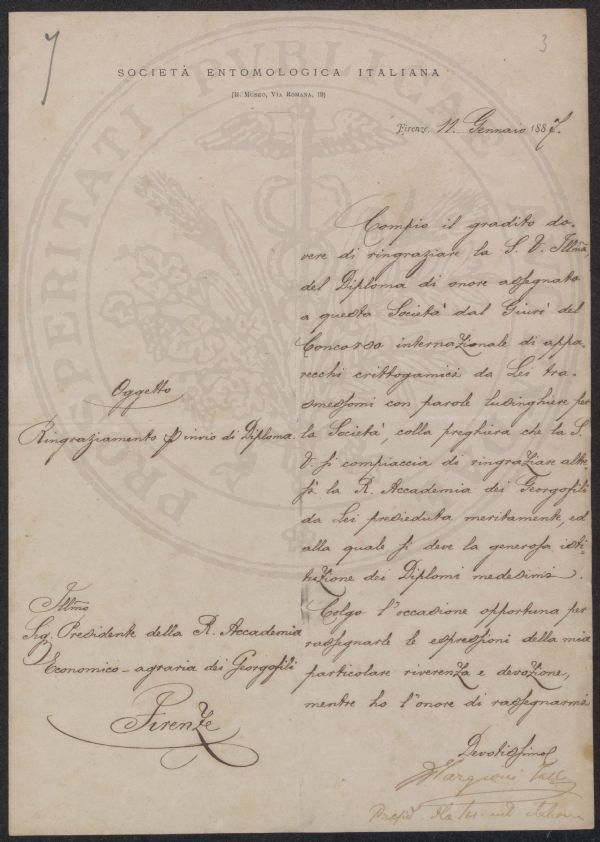 7
3
SOCIETÀ ENTOMOLOGICA ITALIANA
(R. MUSEO, VIA ROMANA, 19)
Firenze, 11 Gennaio 1887.
Compio il gradito do-
vere di ringraziare la S. V. Illma
del Diploma di onore assegnato
a questa Società dal Giurì del
Concorso internazionale di appa-
recchi crittogamici da Lei tra-
smessomi con parole lusinghiere per
la Società, colla preghiera che la S.
V. si compiaccia di ringraziare altre-
sì la R. Accademia dei Georgofili
da Lei presieduta meritamente, ed
alla quale si deve la generosa isti-
tuzione dei Diplomi medesimi.
Colgo l'occasione opportuna per
rassegnarle le espressioni della mia
particolare riverenza e devozione,
mentre ho l'onore di rassegnarmi
Devotissimo
Targioni Tozz
Presid
Oggetto
Ringraziamento p invio di Diploma.
Illmo
Sig. Presidente della R. Accademia
Economico-agraria dei Georgofili
Firenze
PROSPERITATI PVBLICAE